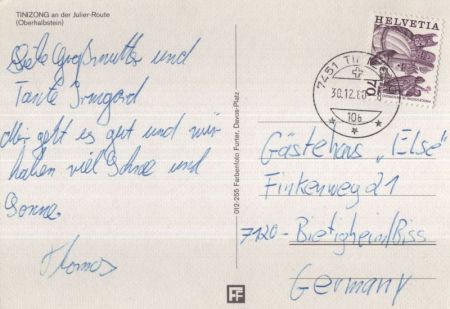 TINIZONG an der Julier-Route
(Oberhalbstein)
Liebe Großmutter und
Tante Irmgard
Mir geht es gut und wir
haben viel Schnee und
Sonne.
Thomas
012-255 Farbenfoto Furter, Davos-Platz
FF
HELVETIA
70
7451 TINIZONG
30.12.80
10a
Gästehaus „Else"
Finkenweg 21
7120 - Bietigheim/Biss
Germany